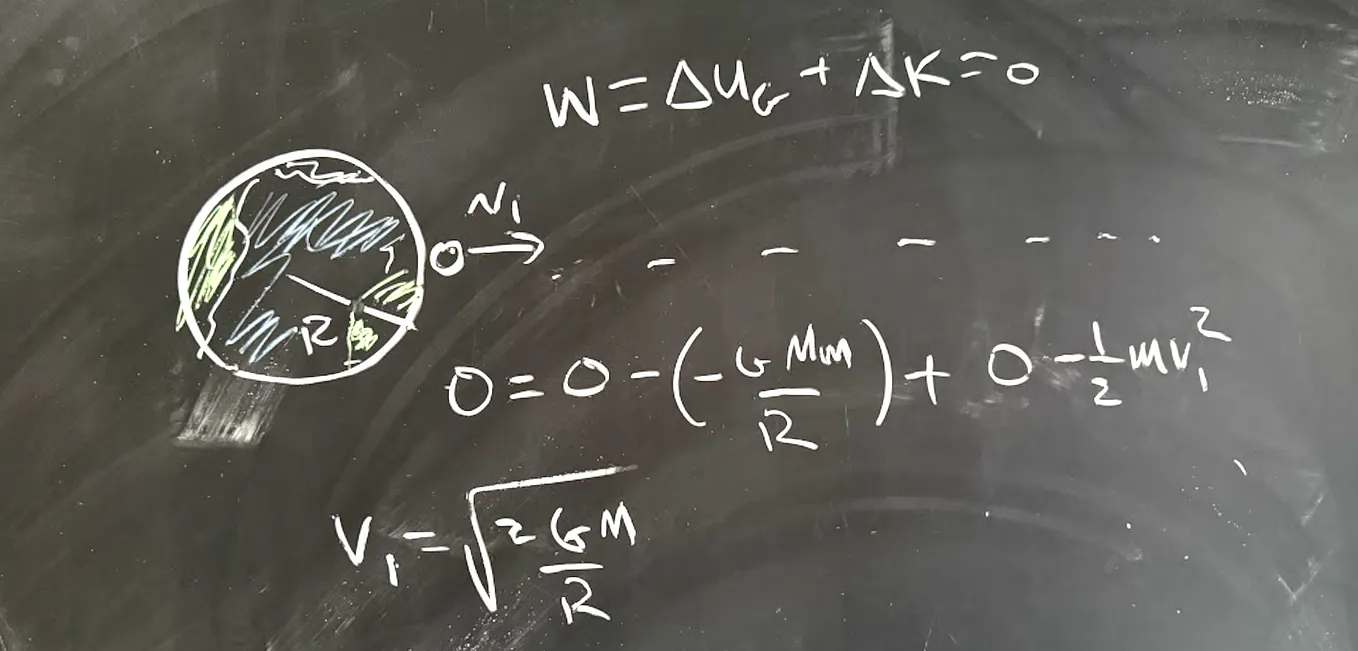 W = ΔU_G + ΔK = 0
v₁
R
0 = 0 - (-G Mm / R) + 0 - 1/2 mv₁²
V₁ = √(2GM / R)